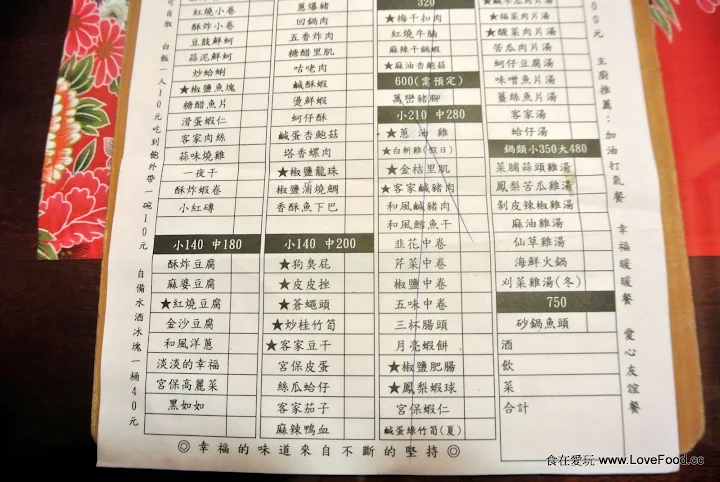 可自取 白飯一人10元吃到飽外帶一碗10元 自備水酒冰塊一桶40元
紅燒小卷
酥炸小卷
豆鼓鮮蚵
蒜泥鮮蚵
炒蛤蜊
★椒鹽魚塊
糖醋魚片
滑蛋蝦仁
客家肉絲
蒜味燒雞
一夜干
酥炸蝦卷
小紅磚
小140 中180
酥炸豆腐
麻婆豆腐
★紅燒豆腐
金沙豆腐
和風洋蔥
淡淡的幸福
宮保高麗菜
黑如如
蔥爆豬
回鍋肉
五香炸肉
糖醋里肌
咕咾肉
鹹酥蝦
燙鮮蝦
蚵仔酥
鹹蛋杏鮑菇
塔香螺肉
★椒鹽龍珠
椒鹽蒲燒鯛
香酥魚下巴
小140 中200
★狗臭屁
★皮皮挫
★蒼蠅頭
★炒桂竹筍
★客家豆干
宮保皮蛋
絲瓜蛤仔
客家茄子
麻辣鴨血
320
★梅干扣肉
紅燒牛腩
麻辣干鍋蝦
★麻油杏鮑菇
600(需預定)
萬巒豬腳
小210 中280
★蔥油雞
★白斬雞(假日)
★金桔里肌
★客家鹹豬肉
和風鹹豬肉
和風鱈魚干
韭花中卷
芹菜中卷
椒鹽中卷
五味中卷
三杯腸頭
月亮蝦餅
★椒鹽肥腸
★鳳梨蝦球
宮保蝦仁
鹹蛋綠竹筍(夏)
★福菜肉片湯
★酸菜肉片湯
苦瓜肉片湯
蚵仔豆腐湯
味噌魚片湯
薑絲魚片湯
客家湯
蛤仔湯
鍋類小350大480
菜脯蒜頭雞湯
鳳梨苦瓜雞湯
剝皮辣椒雞湯
麻油雞湯
仙草雞湯
海鮮火鍋
刈菜雞湯(冬)
750
砂鍋魚頭
酒
飲
菜
合計
00元 主廚推薦：加油打氣餐 幸福暖暖餐 愛心友誼餐
◎幸福的味道來自不斷的堅持◎
食在愛玩 www.LoveFood.cc